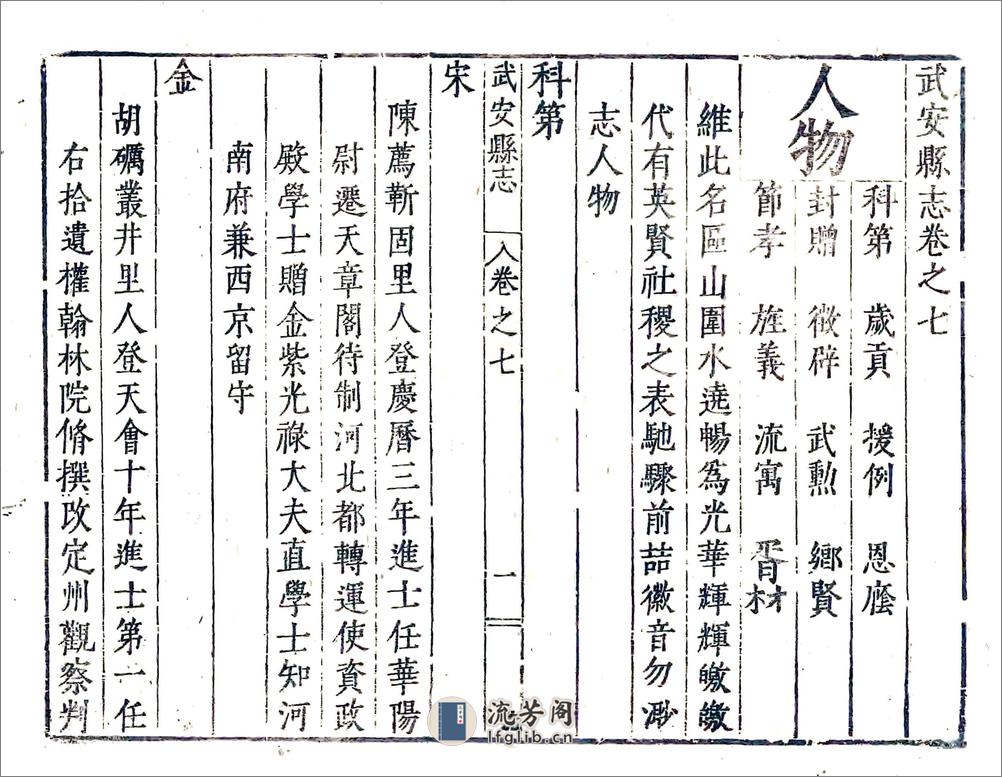 武安縣志卷之七
人物
科第 歲貢 援例 恩廕
封贈 徵辟 武勲 鄉賢
節孝 旌義 流寓 胥材
維此名區山圍水遶暢為光華輝輝皦皦
代有英賢社稷之表馳驟前喆徽音勿渺
志人物
科第
武安縣志 卷之七 一
宋
陳薦靳固里人登慶曆三年進士任華陽
尉遷天章閣待制河北都轉運使資政
殿學士贈金紫光祿大夫直學士知河
南府兼西京留守
金
胡礪叢井里人登天會十年進士第一任
右拾遺權翰林院脩撰改定州觀察判
流芳阁
lfglib.cn